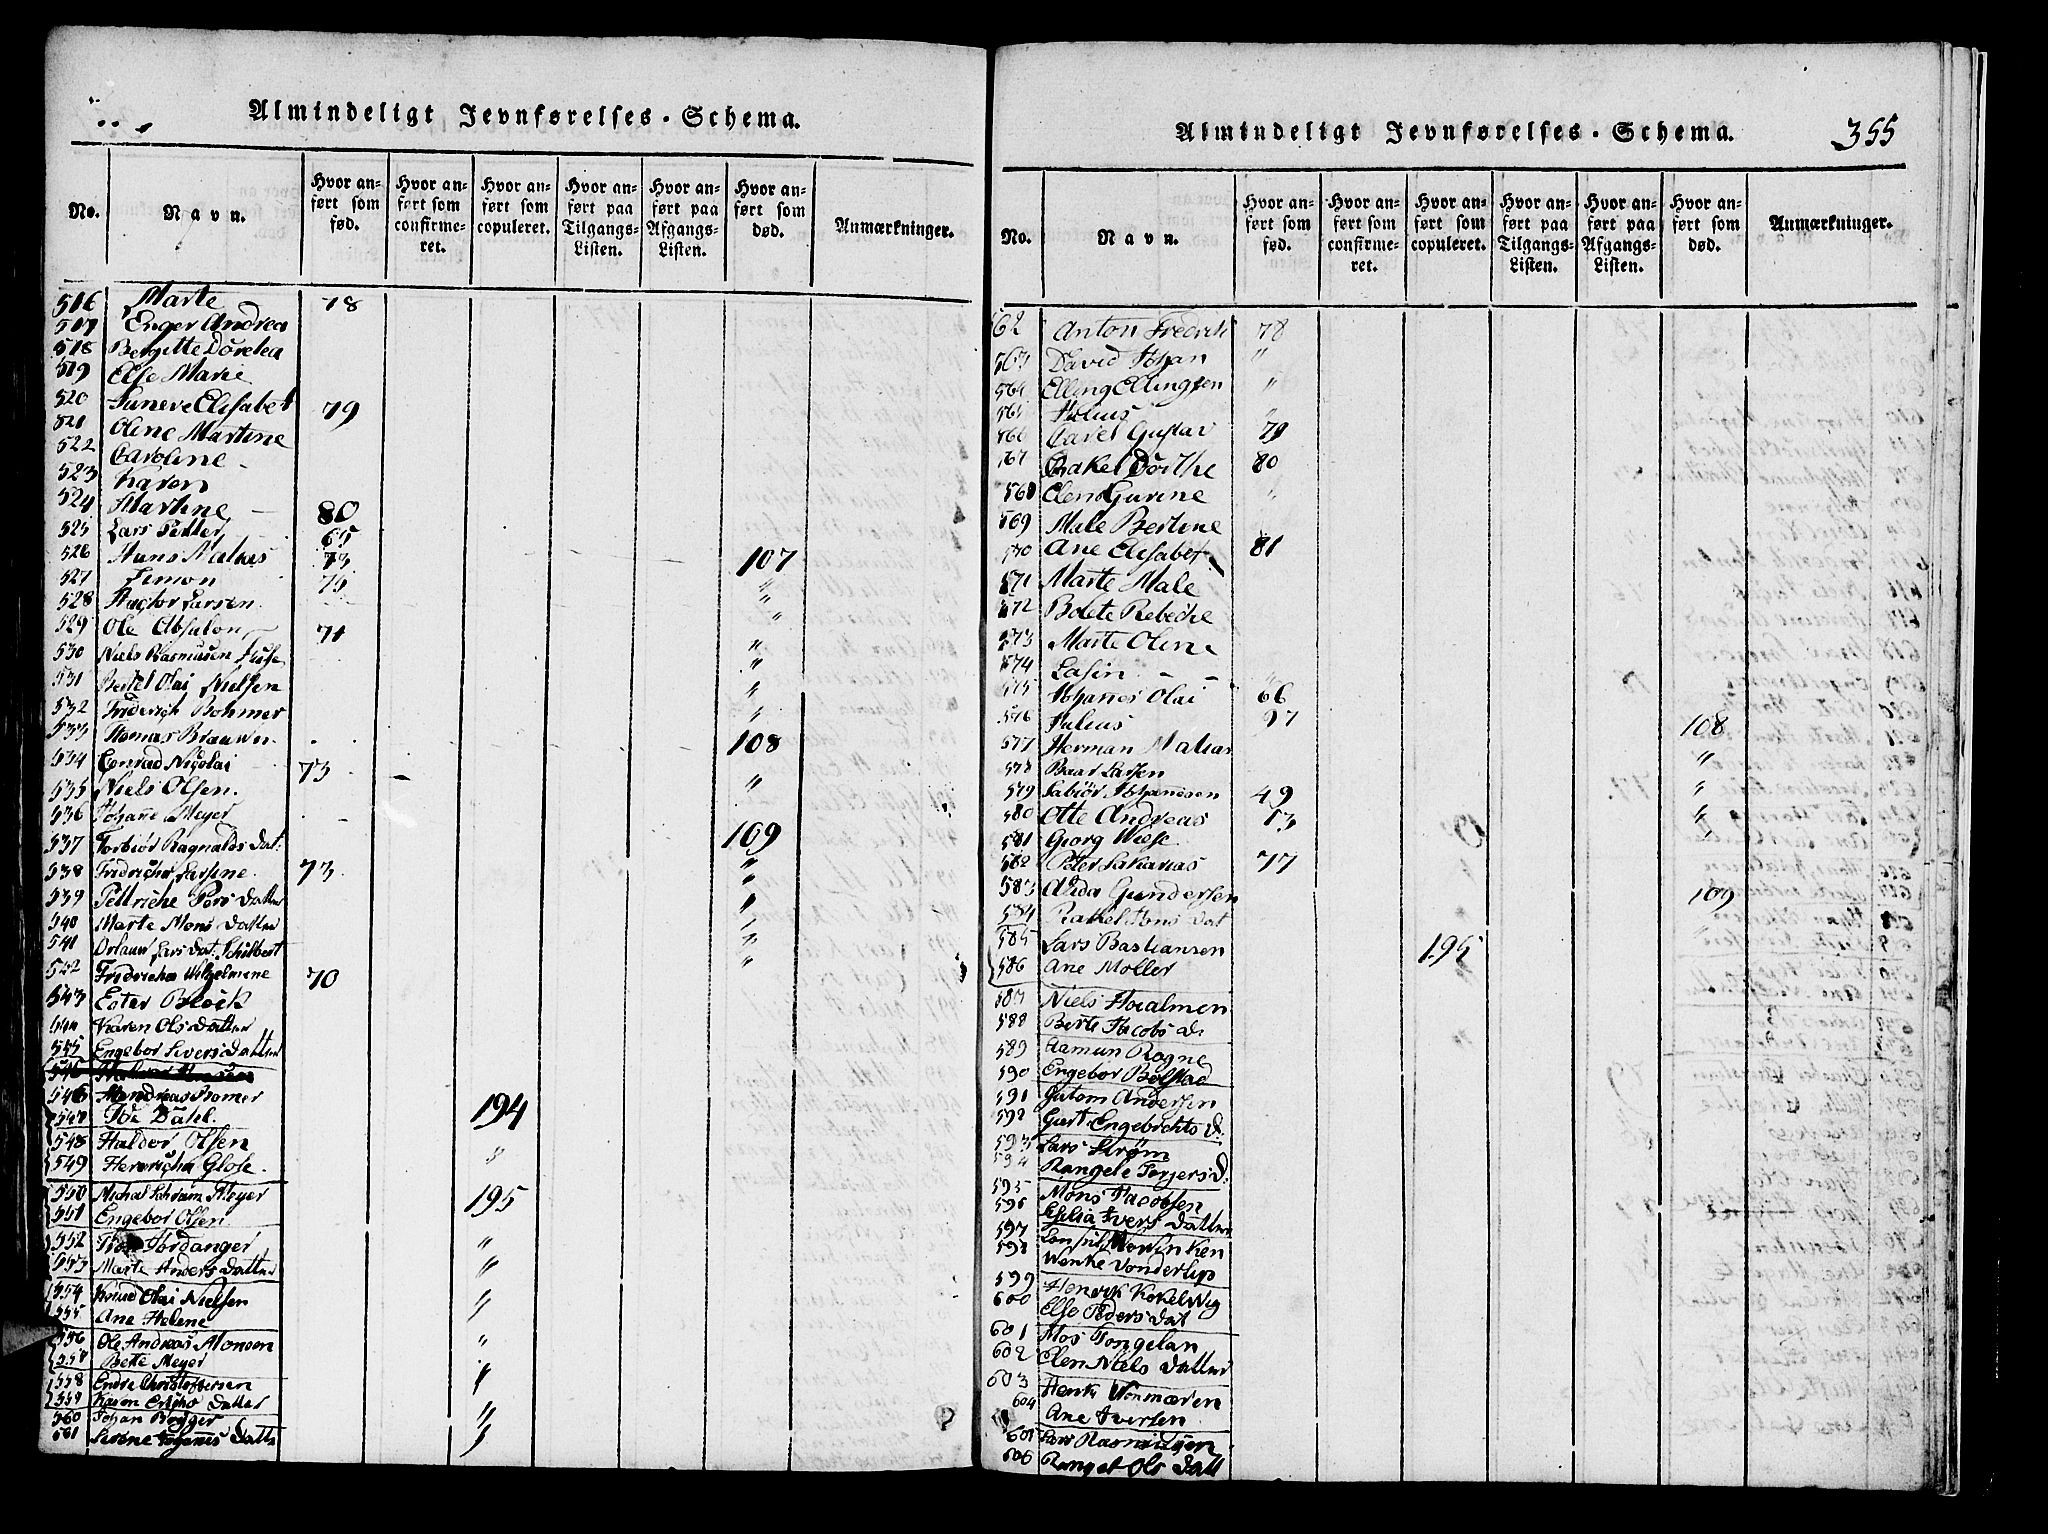 Almindeligt Jevnførelses-Schema.
No. Navn. Hvor anført som fød. Hvor anført som confirmeret. Hvor anført som copuleret. Hvor anført paa Tilgangs-Listen. Hvor anført paa Afgangs-Listen. Hvor anført som død. Anmærkninger.
516 Marte 78
517 Enger Andrea
518 Bergitte Dorelea
519 Else Marie
520 Elisabet 79
521 Oline Martine
522 Caroline
523 Karen
524 Martine 80
525 Lars Petter 65
526 Hans Matias 73 107
527 Simon 75 "
528 Larsen "
529 Ole Absalon 71 "
530 Niels Rasmusen "
531 Bertel Olai Nielsen "
532 Friderich Bohmer "
533 Thomas Brauwn "
534 Conrad Nicolai 73 108
535 Niels Olsen "
536 Johane Meyer
537 Torbiør Ragnalds Dat: 109
538 Fridricha Larsine 73 "
539 Pettriche Pers Datter "
540 Marte Mons Datter "
541 Lars Dat. "
542 Fridricha Wilhelmine 70 "
543 Ester Block
544 Karen Ols Datter
545 Engebor Siversdatter
546
546 Andreas Romer
547 Dahl 194
548 Haldor Olsen
549 Henricha Glose "
550 Michal Schram Meyer
551 Engebor Olsen 195
552 Jordanger "
553 Marte Anders Datter "
554 Knud Olai Nielsen
555 Ane Helene "
556 Ole Andreas Monsen
557 Bette Meyer "
558 Endre Christoffersen
559 Karen Erichs Datter "
560 Johan Brygger "
561 Sirene Johannes Datter "
Almindeligt Jevnførelses-Schema. 355
No. Navn. Hvor anført som fød. Hvor anført som confirmeret. Hvor anført som copuleret. Hvor anført paa Tilgangs-Listen. Hvor anført paa Afgangs-Listen. Hvor anført som død. Anmærkninger.
562 Anton Fredrik 78
563 David Johan "
564 Elling Ellingsen "
565 Julius "
566 Carel Gustav 79
567 Rakel Dorthe 80
568 Elen Gurine "
569 Male Bertine
570 Ane Elisabet 81
571 Marte Male
572 Bolete Rebecke
573 Marte Oline
574 Lasin
575 Johannes Olai 66
576 Julius 108
577 Herman Matias "
578 Baar Larsen "
579 Johannesen 49 "
580 Otte Andreas 13 "
581 Georg Wiese
582 Peter Sakarias 77
583 Gundersen 109
584 Rakel Jens Dat "
585 Lars Bastiansen 195
586 Ane Moller "
587 Niels
588 Berte Jacobs D. "
589 Aamun Rogne
590 Engebor Bolstad
591 Gutorm Andersen
592 Gurt Engebrichts D.
593 Lars Strøm
594 Rangele Torgers D.
595 Mons Jacobsen
596 Ivers Datter
597 Mowinken
598 Wenke Vonderlips
599 Henrik Kokelwig
600 Else Peders Dat
601 Mos Tongelan
602 Elen Niels Datter
603 Henk
604 Ane Iversen
605 Lars Rasmusen
606 Rangel Ols Datt